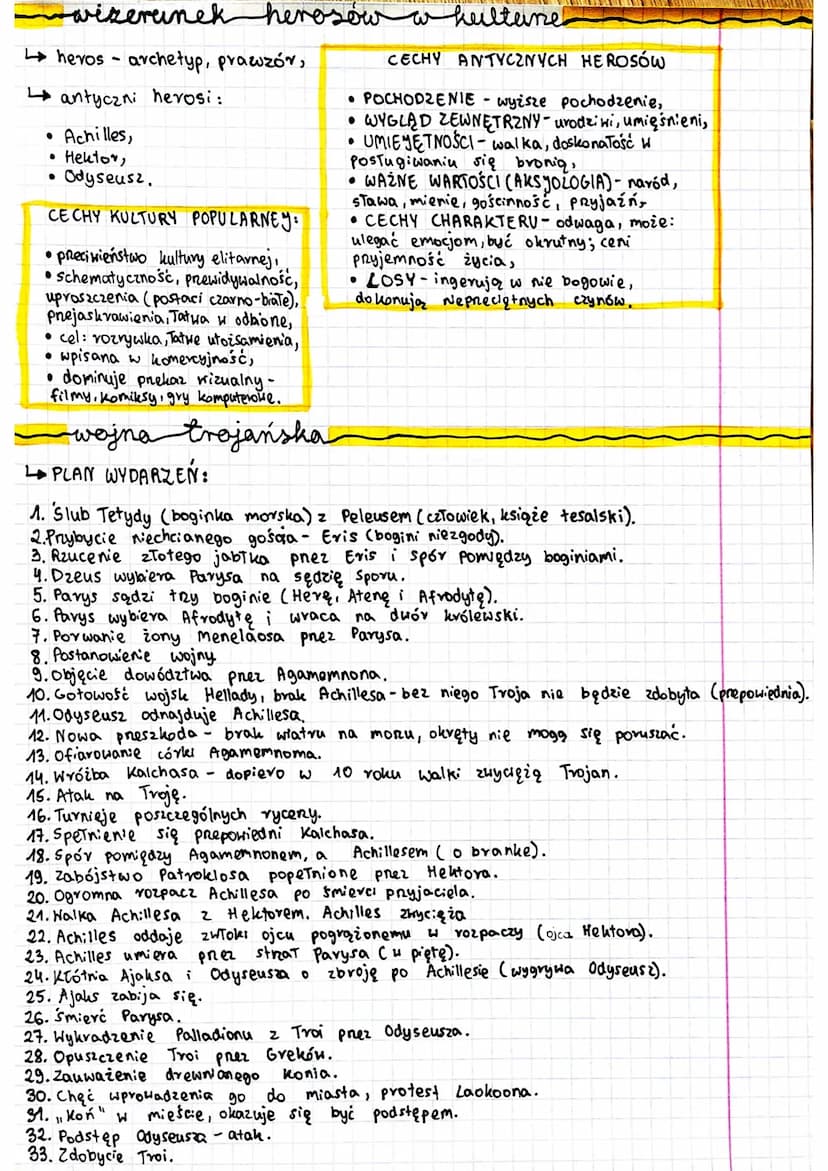 wizerunek herosów w kulturze
↳ heros - archetyp, prawzór,
↳ antyczni herosi:
• Achilles,
• Hektor,
• Odyseusz.
CECHY KULTURY POPULARNEJ:
• przeciwieństwo kultury elitarnej,
• schematyczność, przewidywalność,
uproszczenia (postaci czarno-białe),
przejaskrawienia, łatwa w odbiorze,
• cel: rozrywka, łatwe utożsamienia,
• wpisana w komercyjność,
• dominuje przekaz wizualny -
filmy, komiksy, gry komputerowe.
CECHY ANTYCZNYCH HEROSÓW
• POCHODZENIE - wyższe pochodzenie,
• WYGLĄD ZEWNĘTRZNY - urodziwi, umięśnieni,
• UMIEJĘTNOŚCI - walka, doskonałość w
posługiwaniu się bronią,
• WAŻNE WARTOŚCI (AKSJOLOGIA) - naród,
sława, mienie, gościnność, przyjaźń,
• CECHY CHARAKTERU - odwaga, może:
ulegać emocjom, być okrutny; ceni
przyjemność życia,
• LOSY - ingerują w nie bogowie,
dokonują nieprzeciętnych czynów.
wojna trojańska
↳ PLAN WYDARZEŃ:
1. Ślub Tetydy (boginka morska) z Peleusem (człowiek, książe tesalski).
2. Przybycie niechcianego gościa - Eris (bogini niezgody).
3. Rzucenie złotego jabłka przez Eris i spór pomiędzy boginiami.
4. Dzeus wybiera Parysa na sędzię sporu.
5. Parys sądzi trzy boginie (Herę, Atenę i Afrodytę).
6. Parys wybiera Afrodytę i wraca na dwór królewski.
7. Porwanie żony Menelaosa przez Parysa.
8. Postanowienie wojny
9. Objęcie dowództwa przez Agamemnona.
10. Gotowość wojsk Hellady, brak Achillesa - bez niego Troja nie będzie zdobyta (przepowiednia).
11. Odyseusz odnajduje Achillesa.
12. Nowa przeszkoda - brak wiatru na morzu, okręty nie mogą się poruszać.
13. Ofiarowanie córki Agamemnoma.
14. Wróżba Kalchasa - dopiero w 10 roku walki zwyciężą Trojan.
15. Atak na Troję.
16. Turnieje poszczególnych rycerzy.
17. Spełnienie się przepowiedni Kalchasa.
18. Spór pomiędzy Agamemnonem, a Achillesem (o brankę).
19. Zabójstwo Patroklosa popełnione przez Hektora.
20. Ogromna rozpacz Achillesa po śmierci przyjaciela.
21. Walka Achillesa z Hektorem. Achilles zwycięża
22. Achilles oddaje zwłoki ojcu pogrążonemu w rozpaczy (ojca Hektora).
23. Achilles umiera przez strzał Parysa (w piętę).
24. Kłótnia Ajaksa i Odyseusza o zbroję po Achillesie (wygrywa Odyseusz).
25. Ajaks zabija się.
26. Śmierć Parysa.
27. Wykradzenie Palladionu z Troi przez Odyseusza.
28. Opuszczenie Troi przez Greków.
29. Zauważenie drewnianego konia.
30. Chęć wprowadzenia go do miasta, protest Laokoona.
31. „Koń" w mieście, okazuje się być podstępem.
32. Podstęp Odyseusza - atak.
33. Zdobycie Troi.